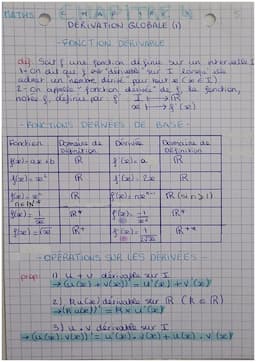 MATHS
CHAPITRE
DÉRIVATION GLOBALE (1)
- FONCTION DÉRIVABLE
déf: Soit f une fonction définie sur un intervalle I
1- On dit que f est "dérivable" sur I lorsqu'elle
admet un nombre dérivé pour tout x (x ∈ I)
2- On appelle "fonction dérivée" de f, la fonction,
notée f', définie par f' I ⟼ ℝ
x ⟼ f'(x)
- FONCTIONS DÉRIVÉES DE BASE -
Fonction | Domaine de Définition | Dérivée | Domaine de Définition
f(x) = ax + b | ℝ | f'(x) = a | ℝ
f(x) = x² | ℝ | f'(x) = 2x | ℝ
f(x) = xⁿ n ∈ ℕ* | ℝ | f'(x) = nxⁿ⁻¹ | ℝ (si n ≥ 1)
f(x) = 1/x | ℝ* | f'(x) = -1/x² | ℝ*
f(x) = √x | ℝ⁺ | f'(x) = 1/2√x | ℝ⁺*
- OPÉRATIONS SUR LES DÉRIVÉES -
prop: 1) u + v dérivable sur I
→ (u(x) + v(x))' = u'(x) + v'(x)
2) ku(x) dérivable sur ℝ (k ∈ ℝ)
→ (ku(x))' = k × u'(x)
3) u . v dérivable sur I
→ (u(x) . v(x))' = u'(x) . v(x) + u(x) . v'(x)